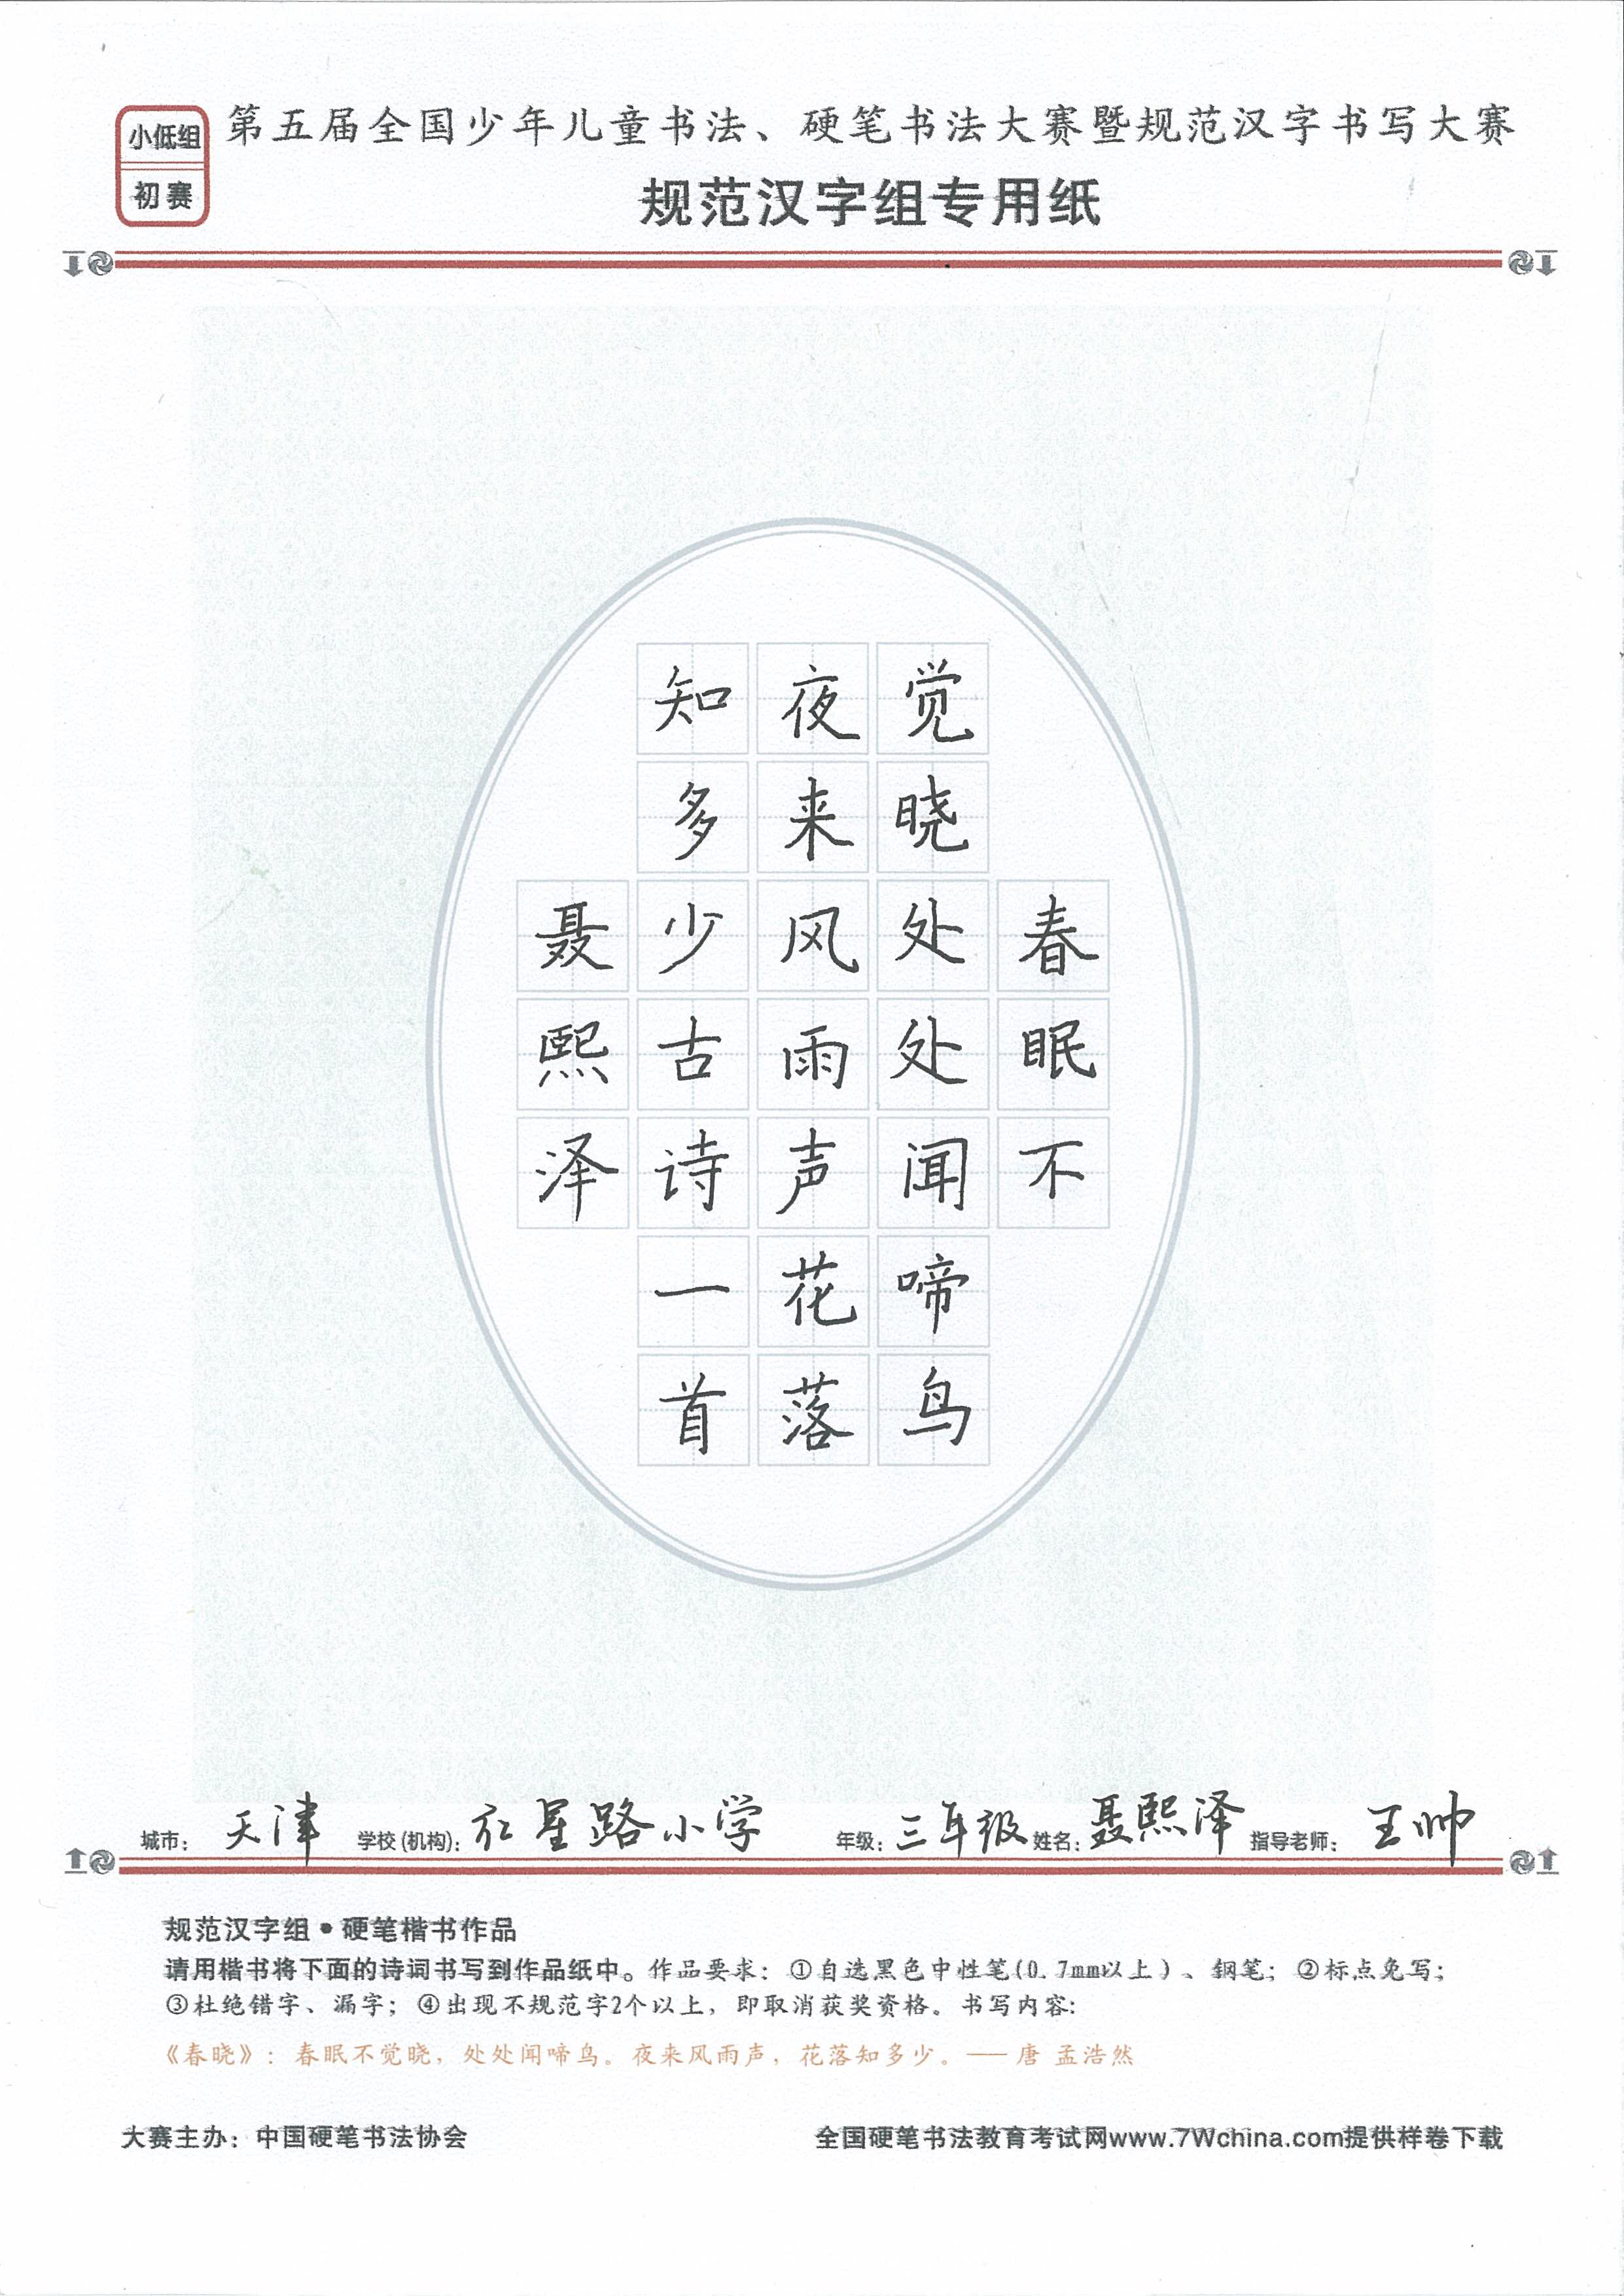 小低组
初赛
第五届全国少年儿童书法、硬笔书法大赛暨规范汉字书写大赛
规范汉字组专用纸
春眠不
觉晓处处闻啼鸟
夜来风雨声花落
知多少古诗一首
聂熙泽
城市：天津 学校(机构)：红星路小学 年级：三年级 姓名：聂熙泽 指导老师：王帅
规范汉字组●硬笔楷书作品
请用楷书将下面的诗词书写到作品纸中。作品要求：①自选黑色中性笔(0.7mm以上)、钢笔；②标点免写；
③杜绝错字、漏字；④出现不规范字2个以上，即取消获奖资格。书写内容：
《春晓》：春眠不觉晓，处处闻啼鸟。夜来风雨声，花落知多少。——唐 孟浩然
大赛主办：中国硬笔书法协会
全国硬笔书法教育考试网www.7Wchina.com提供样卷下载